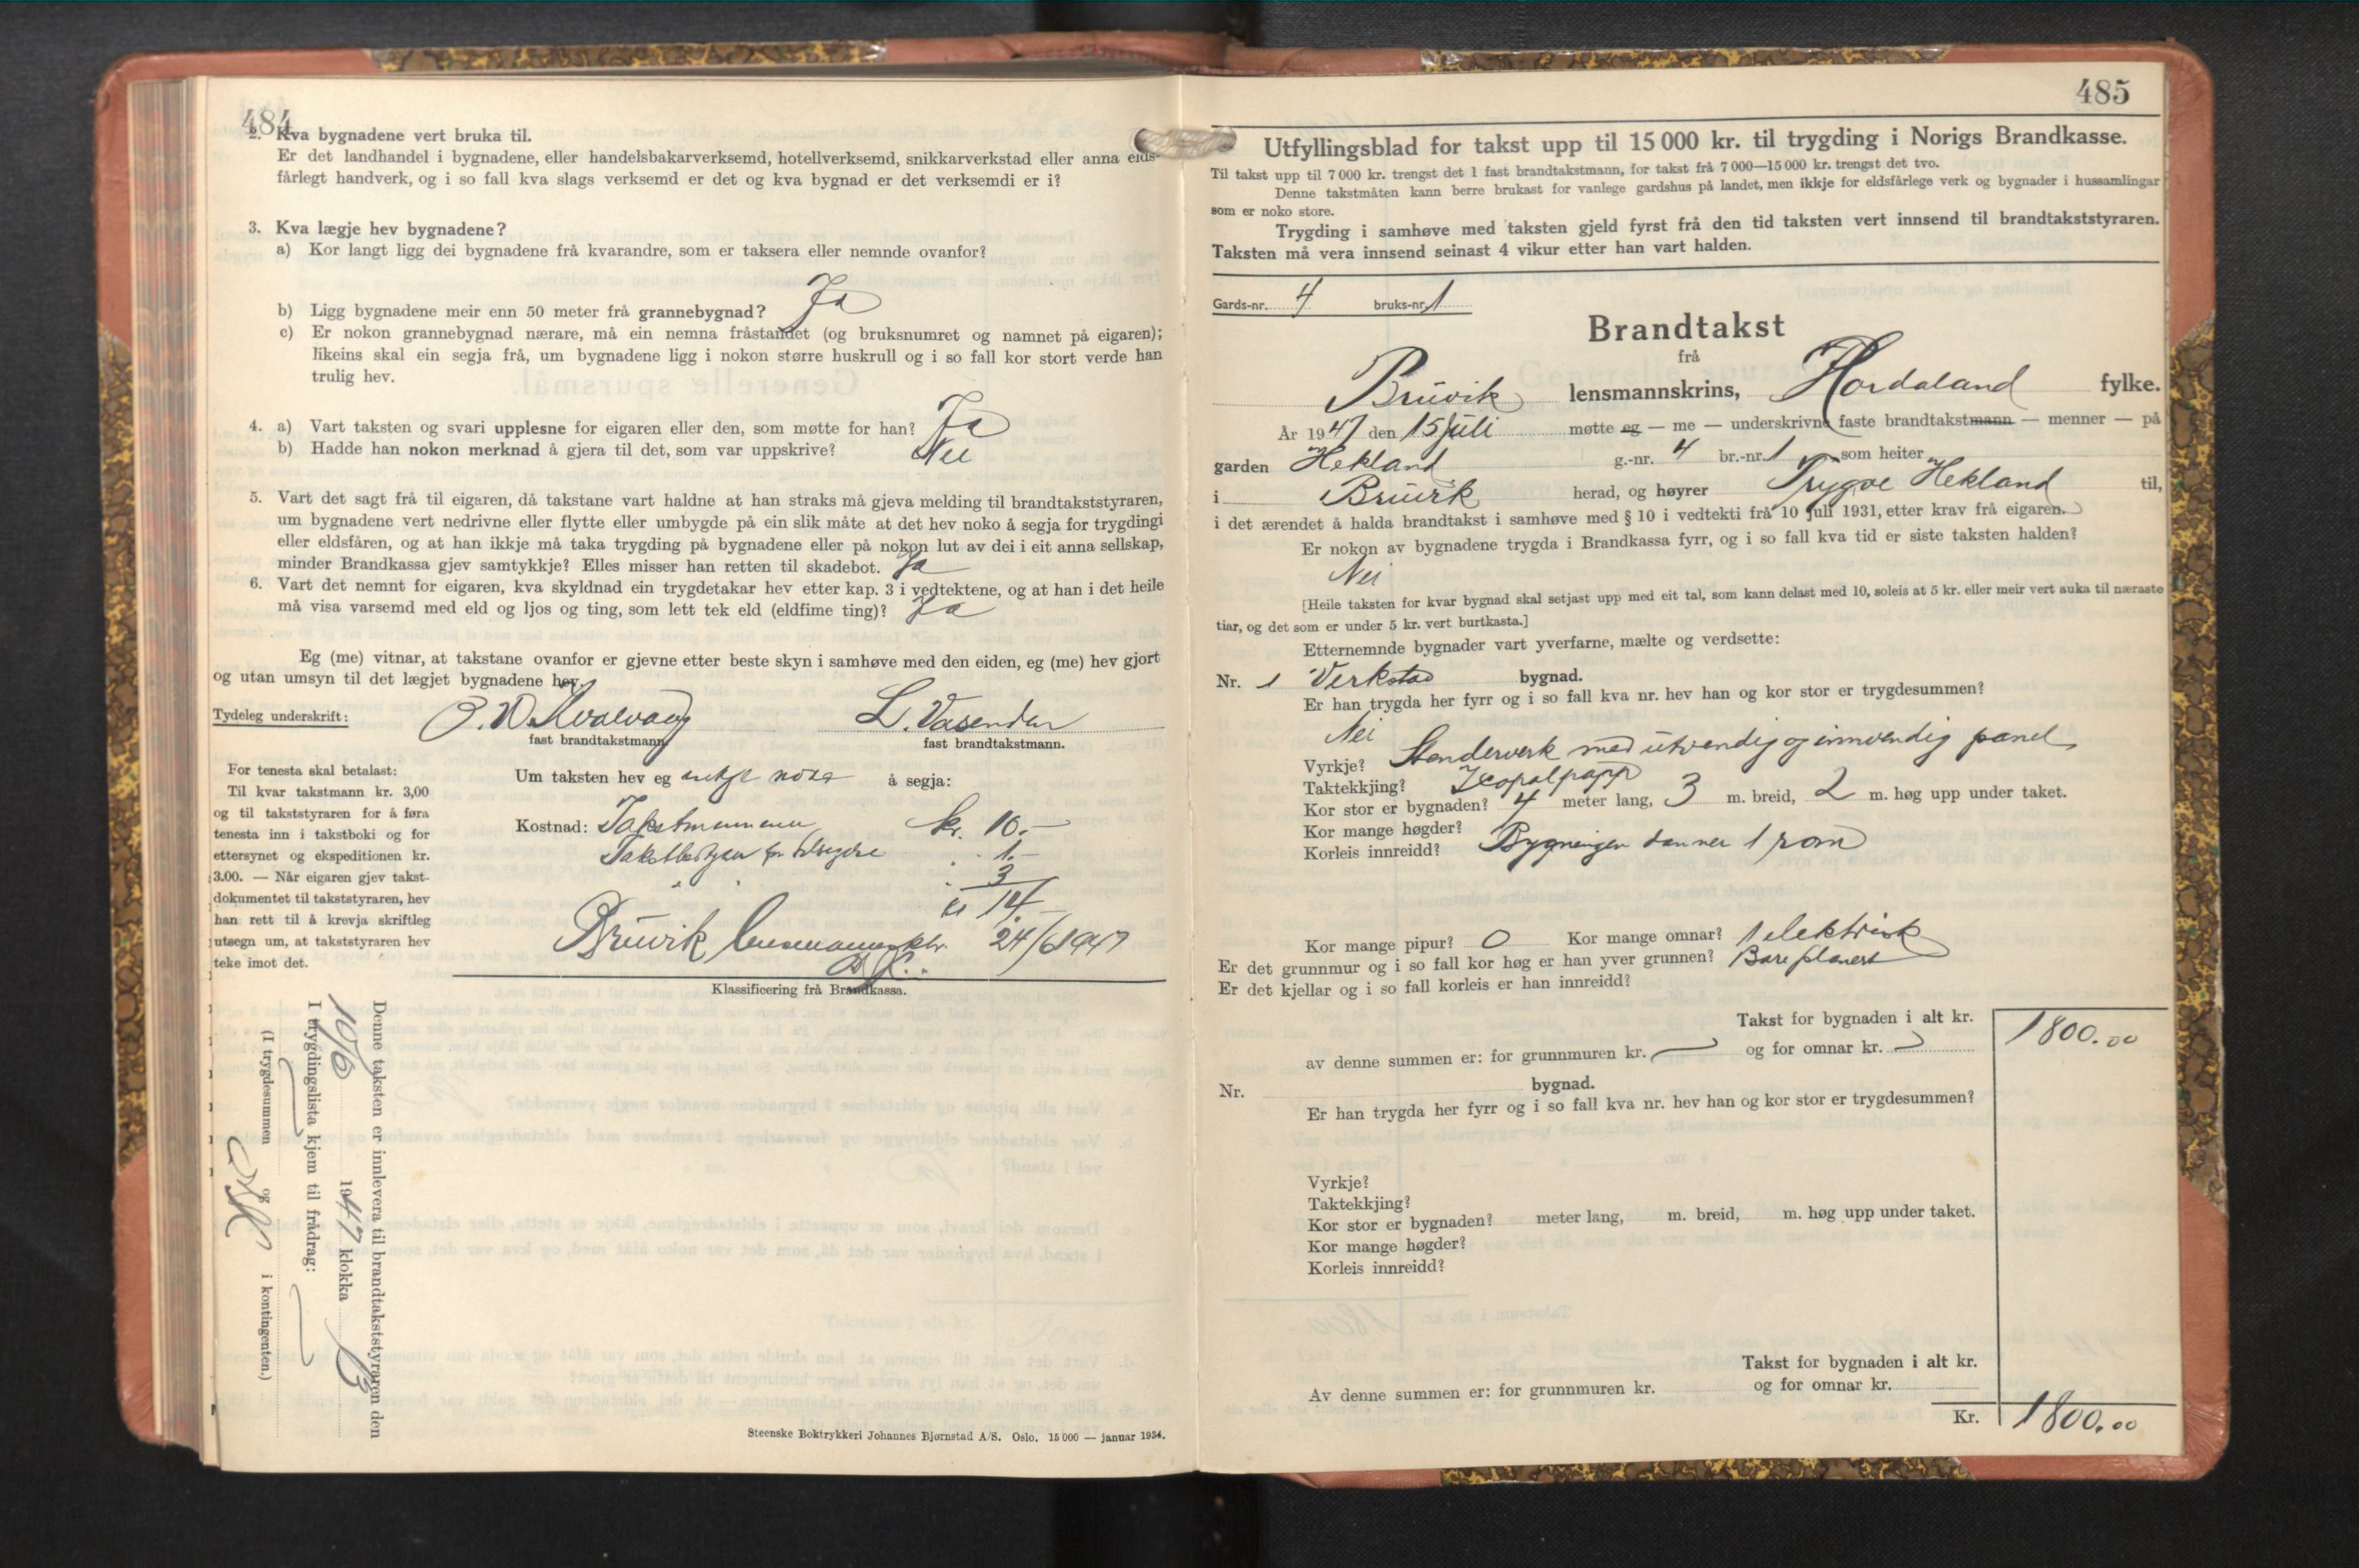 484
2. Kva bygnadene vert bruka til.
Er det landhandel i bygnadene, eller handelsbakarverksemd, hotellverksemd, snikkarverkstad eller anna elds-
fårlegt handverk, og i so fall kva slags verksemd er det og kva bygnad er det verksemdi er i?
3. Kva lægje hev bygnadene?
a) Kor langt ligg dei bygnadene frå kvarandre, som er taksera eller nemnde ovanfor?
b) Ligg bygnadene meir enn 50 meter frå grannebygnad? Ja
c) Er nokon grannebygnad nærare, må ein nemna fråstandet (og bruksnumret og namnet på eigaren);
likeins skal ein segja frå, um bygnadene ligg i nokon større huskrull og i so fall kor stort verde han
trulig hev.
4. a) Vart taksten og svari upplesne for eigaren eller den, som møtte for han? Ja
b) Hadde han nokon merknad å gjera til det, som var uppskrive? Nei
5. Vart det sagt frå til eigaren, då takstane vart haldne at han straks må gjeva melding til brandtakststyraren,
um bygnadene vert nedrivne eller flytte eller umbygde på ein slik måte at det hev noko å segja for trygdingi
eller eldsfåren, og at han ikkje må taka trygding på bygnadene eller på nokon lut av dei i eit anna sellskap,
minder Brandkassa gjev samtykkje? Elles misser han retten til skadebot. Ja
6. Vart det nemnt for eigaren, kva skyldnad ein trygdetakar hev etter kap. 3 i vedtektene, og at han i det heile
må visa varsemd med eld og ljos og ting, som lett tek eld (eldfime ting)? Ja
Eg (me) vitnar, at takstane ovanfor er gjevne etter beste skyn i samhøve med den eiden, eg (me) hev gjort
og utan umsyn til det lægjet bygnadene hev.
Tydeleg underskrift: Kvalvaag L. Vasenden
fast brandtakstmann. fast brandtakstmann.
For tenesta skal betalast:
Til kvar takstmann kr. 3,00
og til takststyraren for å føra
tenesta inn i takstboki og for
ettersynet og ekspeditionen kr.
3.00. — Når eigaren gjev takst-
dokumentet til takststyraren, hev
han rett til å krevja skriftleg
utsegn um, at takststyraren hev
teke imot det.
Um taksten hev eg å segja:
Kostnad: Takstmennene kr. 10.–
1.–
3
14.–
Bruvik 24/6 1947
Klassificering frå Brandkassa.
Denne taksten er innlevera til brandtakststyraren den
10/6 1947 klokka
I trygdingslista kjem til frådrag:
(I trygdesummen og i kontingenten.)
Steenske Boktrykkeri Johannes Bjørnstad A/S. Oslo. 15 000 — januar 1934.
485
Utfyllingsblad for takst upp til 15 000 kr. til trygding i Norigs Brandkasse.
Til takst upp til 7 000 kr. trengst det 1 fast brandtakstmann, for takst frå 7 000—15 000 kr. trengst det tvo.
Denne takstmåten kann berre brukast for vanlege gardshus på landet, men ikkje for eldsfårlege verk og bygnader i hussamlingar
som er noko store.
Trygding i samhøve med taksten gjeld fyrst frå den tid taksten vert innsend til brandtakststyraren.
Taksten må vera innsend seinast 4 vikur etter han vart halden.
Gards-nr. 4 bruks-nr. 1
Brandtakst
frå
Bruvik lensmannskrins, Hordaland fylke.
År 1947 den 15 juli møtte eg — me — underskrivne faste brandtakstmann — menner — på
garden Hekland g.-nr. 4 br.-nr. 1 som heiter
i Bruvik herad, og høyrer Trygve Hekland til,
i det ærendet å halda brandtakst i samhøve med § 10 i vedtekti frå 10 juli 1931, etter krav frå eigaren.
Er nokon av bygnadene trygda i Brandkassa fyrr, og i so fall kva tid er siste taksten halden?
Nei
[Heile taksten for kvar bygnad skal setjast upp med eit tal, som kann delast med 10, soleis at 5 kr. eller meir vert auka til næraste
tiar, og det som er under 5 kr. vert burtkasta.]
Etternemnde bygnader vart yverfarne, mælte og verdsette:
Nr. 1 Verkstad bygnad.
Er han trygda her fyrr og i so fall kva nr. hev han og kor stor er trygdesummen?
Nei
Vyrkje? Stenderverk med utvendig og innvendig panel
Taktekkjing? Icopalpapp
Kor stor er bygnaden? 4 meter lang, 3 m. breid, 2 m. høg upp under taket.
Kor mange høgder?
Korleis innreidd? Bygningen danner 1 rom
Kor mange pipur? 0 Kor mange omnar? 1 elektrisk
Er det grunnmur og i so fall kor høg er han yver grunnen? Bare planert
Er det kjellar og i so fall korleis er han innreidd?
Takst for bygnaden i alt kr. 1800.00
av denne summen er: for grunnmuren kr. — og for omnar kr. —
Nr. bygnad.
Er han trygda her fyrr og i so fall kva nr. hev han og kor stor er trygdesummen?
Vyrkje?
Taktekkjing?
Kor stor er bygnaden? meter lang, m. breid, m. høg upp under taket.
Kor mange høgder?
Korleis innreidd?
Takst for bygnaden i alt kr.
Av denne summen er: for grunnmuren kr. og for omnar kr.
Kr. 1800.00